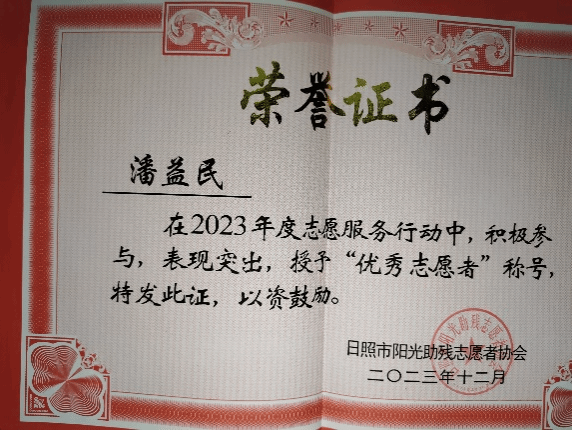 荣誉证书
潘益民
在2023年度志愿服务行动中，积极参
与，表现突出，授予“优秀志愿者”称号，
特发此证，以资鼓励。
日照市阳光助残志愿者协会
二〇二三年十二月